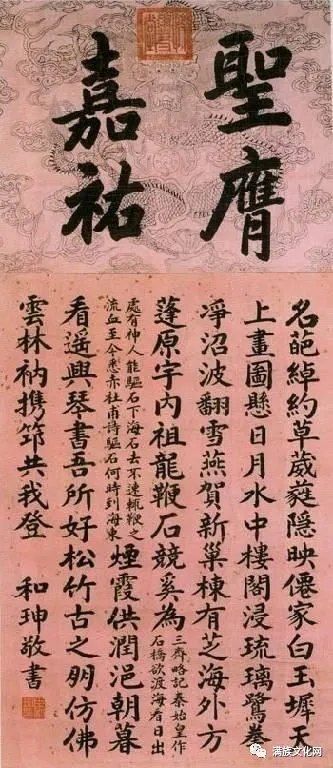 聖膺
嘉祐
名葩綽約草葳蕤隱映僊家白玉墀天
上畫圖懸日月水中樓閣浸琉璃鷺卷
凈沼波翻雪燕賀新巢棟有芝海外方
蓬原宇内祖龍鞭石競奚為
三齊略記秦始皇作
石橋欲渡海看日出
處有神人能驅石下海石去不速輒鞭之
流血至今悉赤杜甫詩驅石何時到海東
煙霞供潤浥朝暮
看遙興琴書吾所好松竹古之朋仿佛
雲林衲携筇共我登
和珅敬書
满族文化网